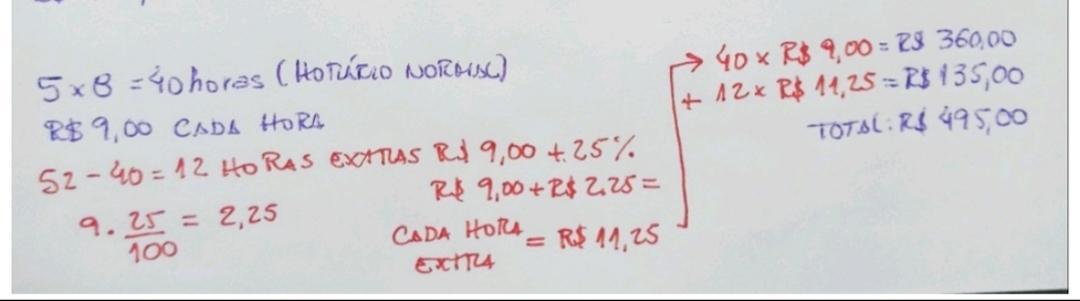 5 x 8 = 40 horas (HORÁRIO NORMAL)
R$ 9,00 CADA HORA
52 - 40 = 12 HORAS EXTRAS R$ 9,00 + 25%
R$ 9,00 + R$ 2,25 =
9 . 25/100 = 2,25
CADA HORA EXTRA = R$ 11,25
→ 40 x R$ 9,00 = R$ 360,00
+ 12 x R$ 11,25 = R$ 135,00
TOTAL: R$ 495,00